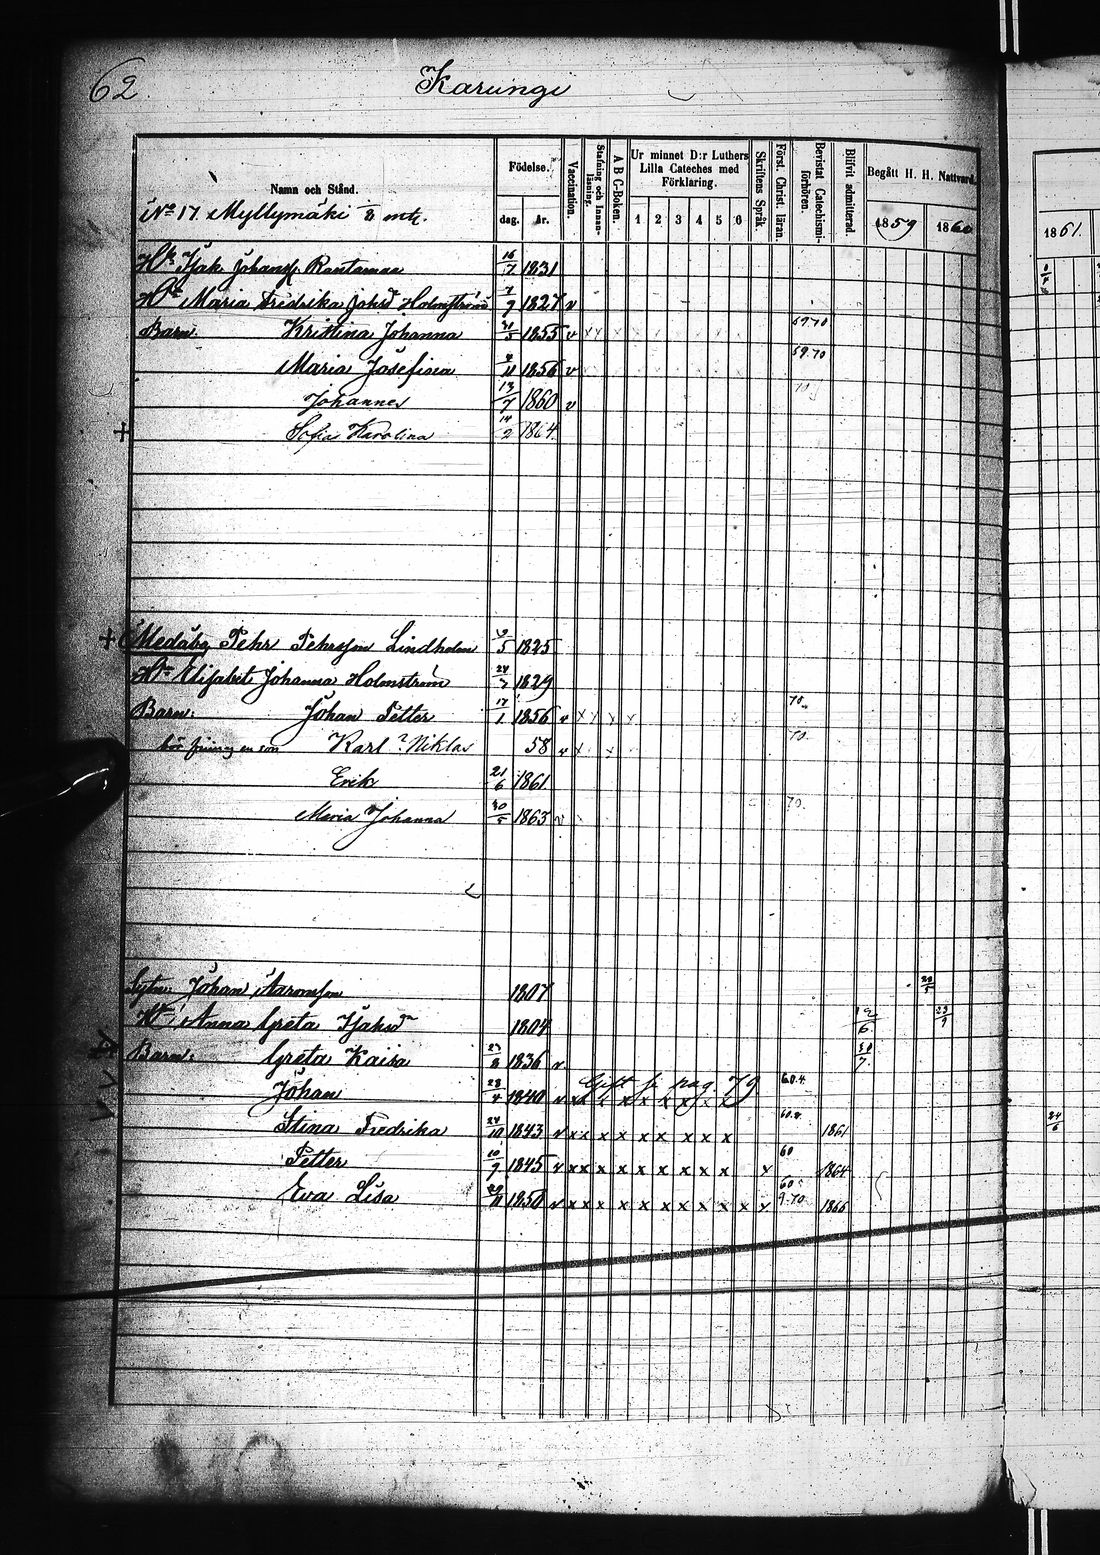 62
Karungi
Namn och Stånd.
Födelse.
dag. år.
Vaccination.
Stafning och Innanläsning.
A B C-Boken.
Ur minnet D:r Luthers Lilla Cateches med Förklaring.
1 2 3 4 5 6
Skriftens Språk.
Först. Christ. läran.
Bevistat Catechismiförhören.
Blifvit admitterad.
Begått H. H. Nattvard.
1859 1860
1861.
No 17 Myllymäki mtl.
Isak Johanss Rantamaa 16/7 1831
Hu Maria Fredrika Johsd Holmström 7/9 1827 v
Barn Kristina Johanna 31/5 1855 v x x 69.70
Maria Josefina 4/11 1856 v 69.70
Johannes 13/7 1860 v
+ Sofia Karolina 14/2 1864
+ Medåbg Pehr Pehrsson Lindholm 1825
Hu Elisabet Johanna Holmström 24/7 1829
Barn: Johan Petter 17/1 1856 v x x x x 70.
en son Karl? Niklas 58 v x x 70.
Erik 21/6 1861
Maria Johanna 30/5 1863 v 70.
Johan Aaronsson 1807
Hu Anna Greta Isaksdr 1804
Barn: Greta Kaisa 23/8 1836 v 30/7.
Johan 28/4 1840 v Gift se pag. 79 60.4.
Stina Fredrika 24/10 1843 v x x x x x x x x x 1861 24/6
Petter 10/9 1845 v x x x x x x x x x v 60 1864
Eva Lisa 29/11 1850 v x x x x x x x x x x v 60 9.70 1866